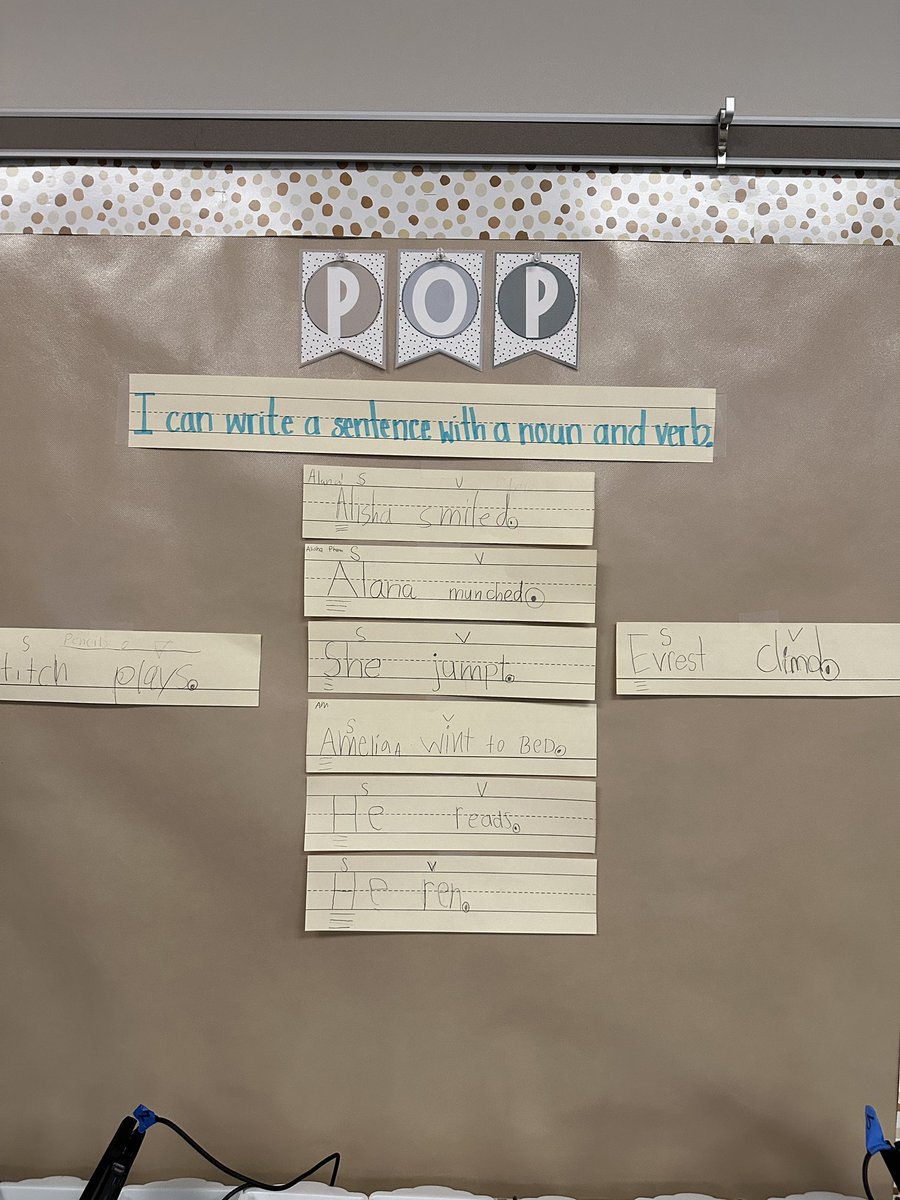 POP
I can write a sentence with a noun and verb.
Alana S V
Alisha smiled.
Alisha Pham S V
Alana munched.
S V
She jumpt.
S V
titch plays.
S V
Evrest climd.
AM
S V
Ameliaa wint to BeD.
S V
He reads.
S V
He ren.